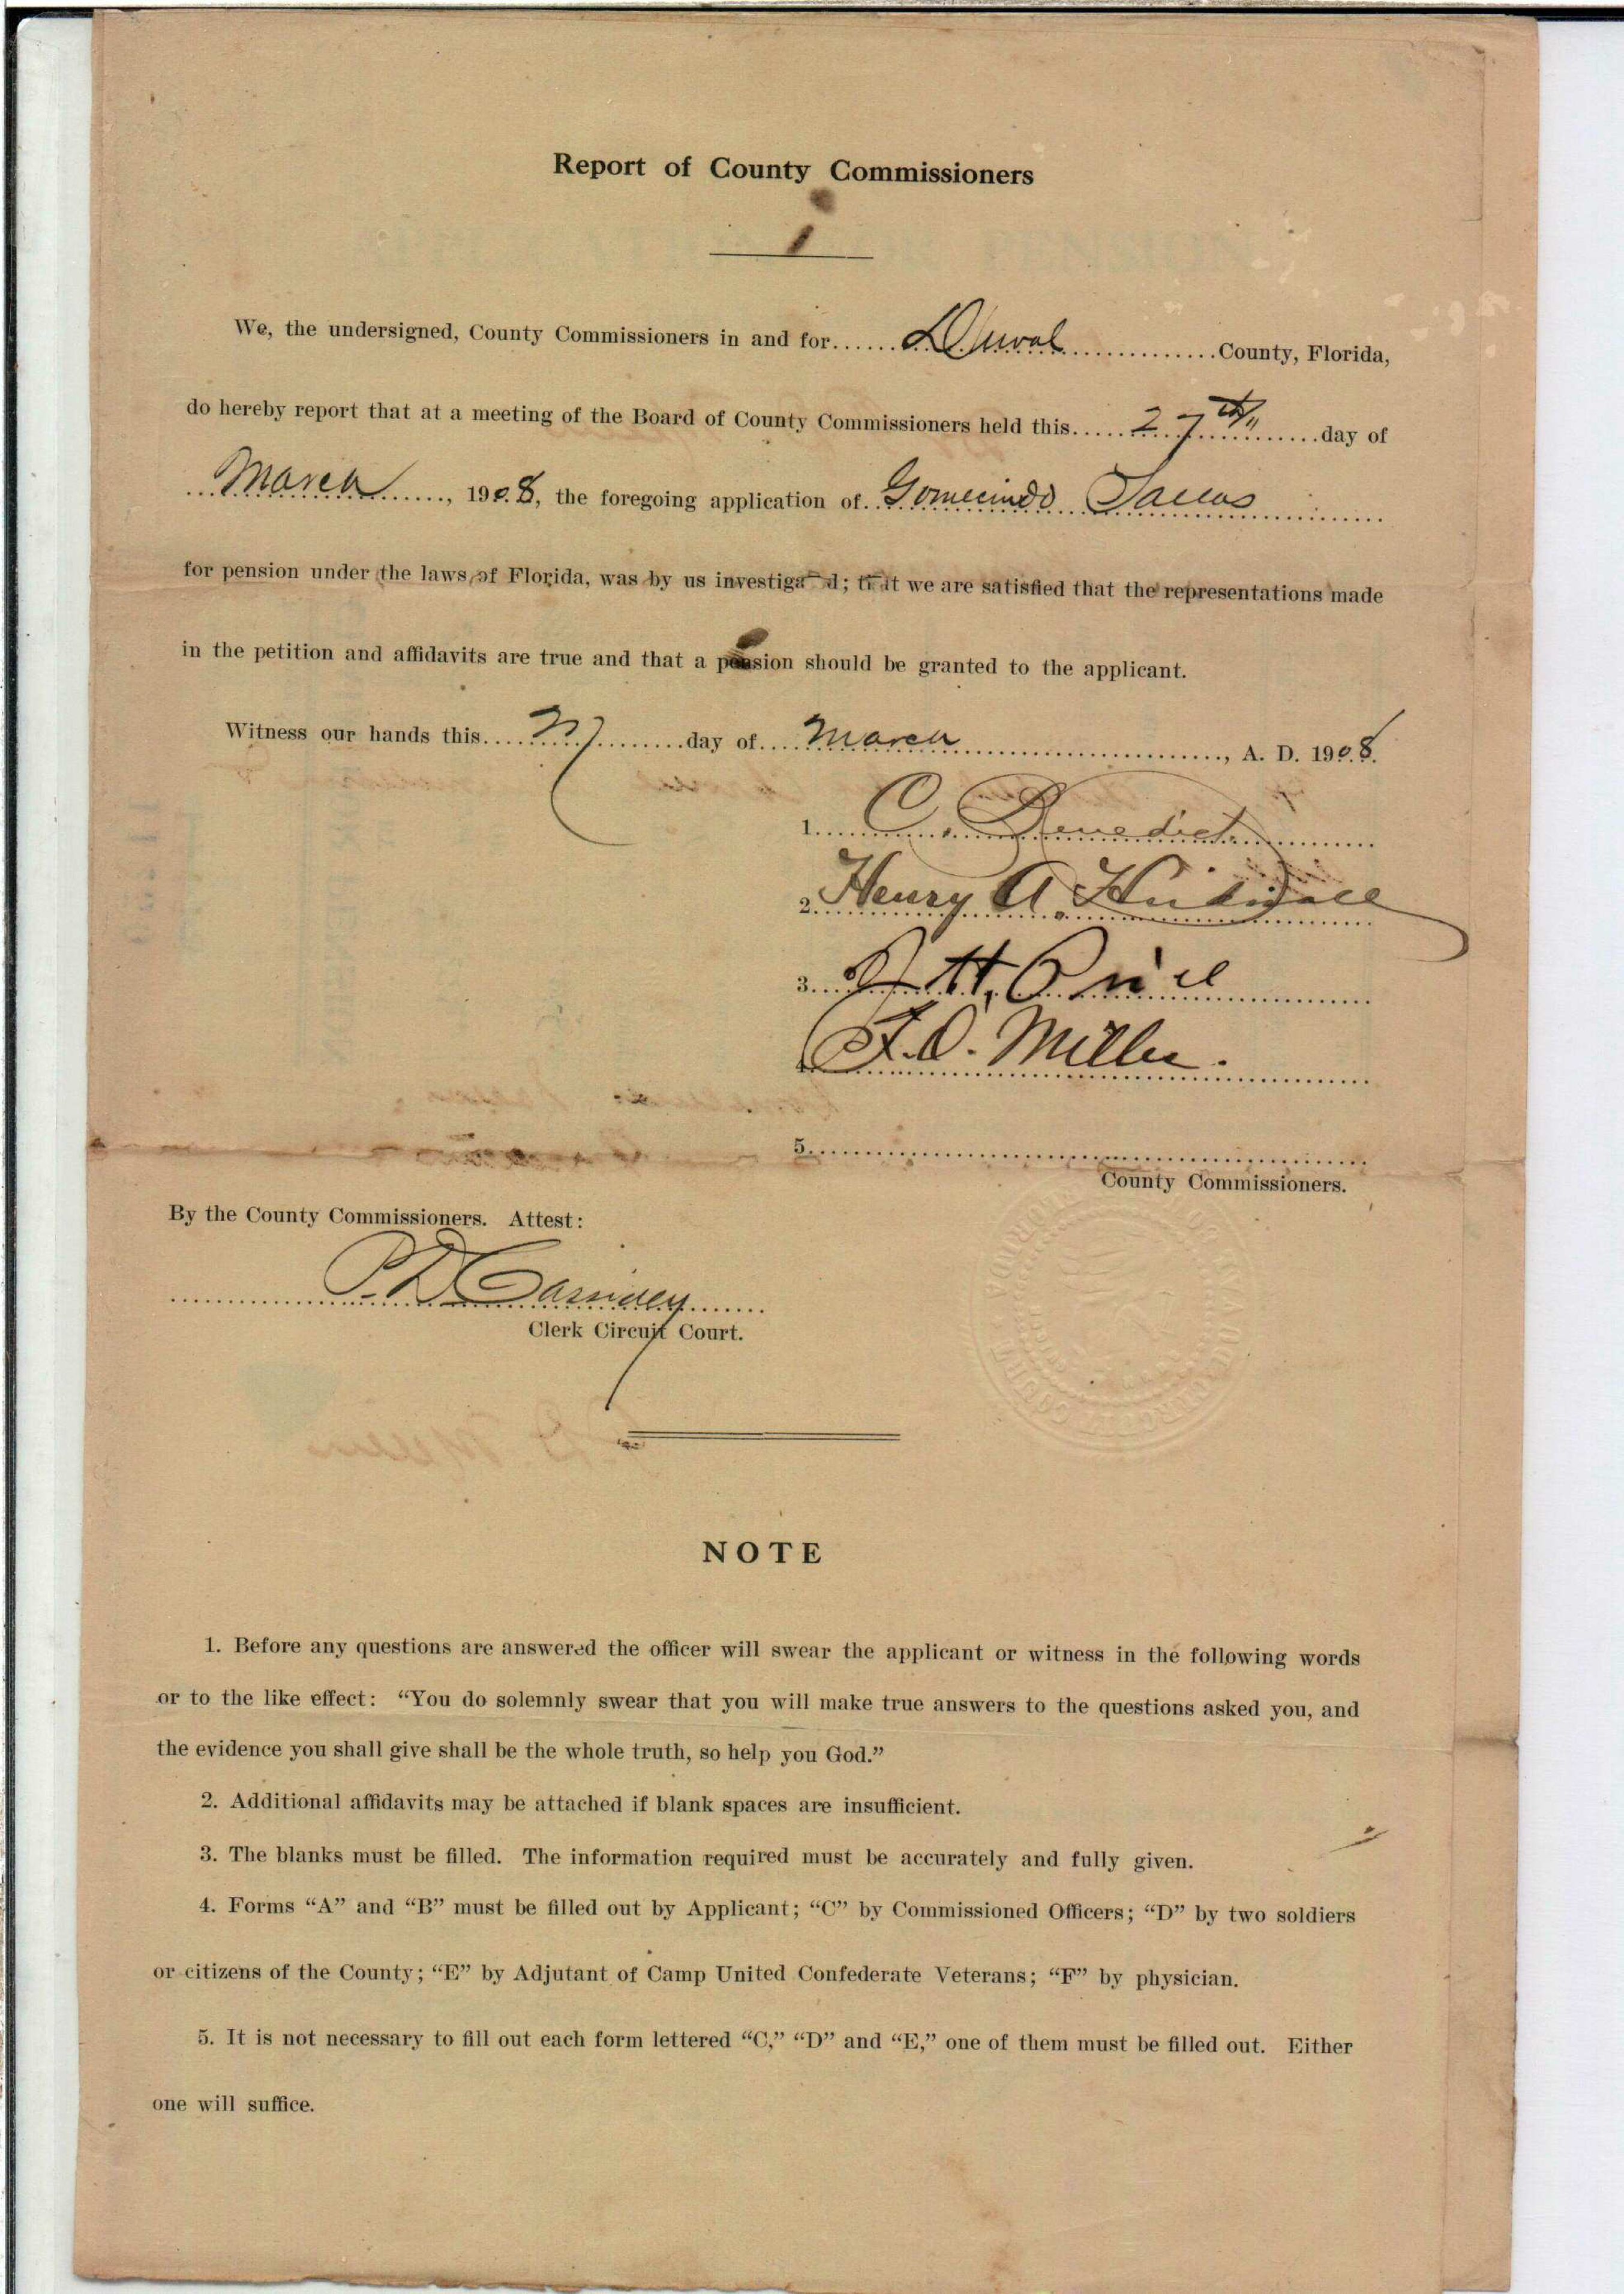 Report of County Commissioners
We, the undersigned, County Commissioners in and for...... Duval ..............County, Florida,
do hereby report that at a meeting of the Board of County Commissioners held this..... 27th ..........day of
...March......, 190.8, the foregoing application of..
for pension under the laws of Florida, was by us investigated; that we are satisfied that the representations made
in the petition and affidavits are true and that a pension should be granted to the applicant.
Witness our hands this.... 27 .........day of.... March ............................, A. D. 190.8.
1. C. Benedict
2. Henry A.
3.
4. F. D. Miller.
5.
County Commissioners.
By the County Commissioners. Attest:
P. D. Cassidey
Clerk Circuit Court.
NOTE
1. Before any questions are answered the officer will swear the applicant or witness in the following words
or to the like effect: “You do solemnly swear that you will make true answers to the questions asked you, and
the evidence you shall give shall be the whole truth, so help you God.”
2. Additional affidavits may be attached if blank spaces are insufficient.
3. The blanks must be filled. The information required must be accurately and fully given.
4. Forms “A” and “B” must be filled out by Applicant; “C” by Commissioned Officers; “D” by two soldiers
or citizens of the County; “E” by Adjutant of Camp United Confederate Veterans; “F” by physician.
5. It is not necessary to fill out each form lettered “C,” “D” and “E,” one of them must be filled out. Either
one will suffice.